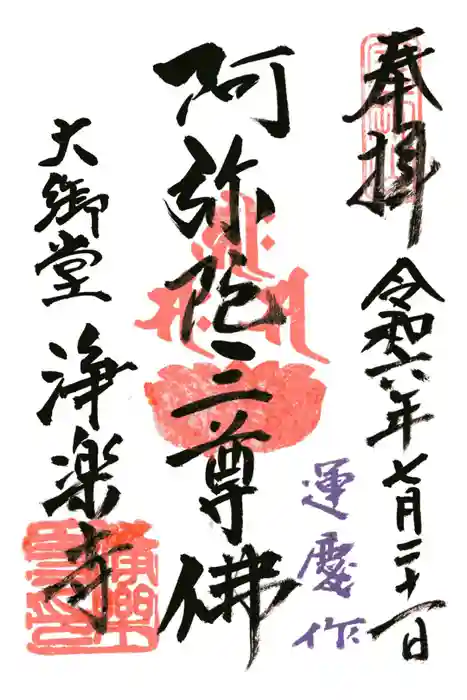 奉拝
令和六年七月二十一日
運慶作
阿弥陀三尊佛
大御堂
浄楽寺